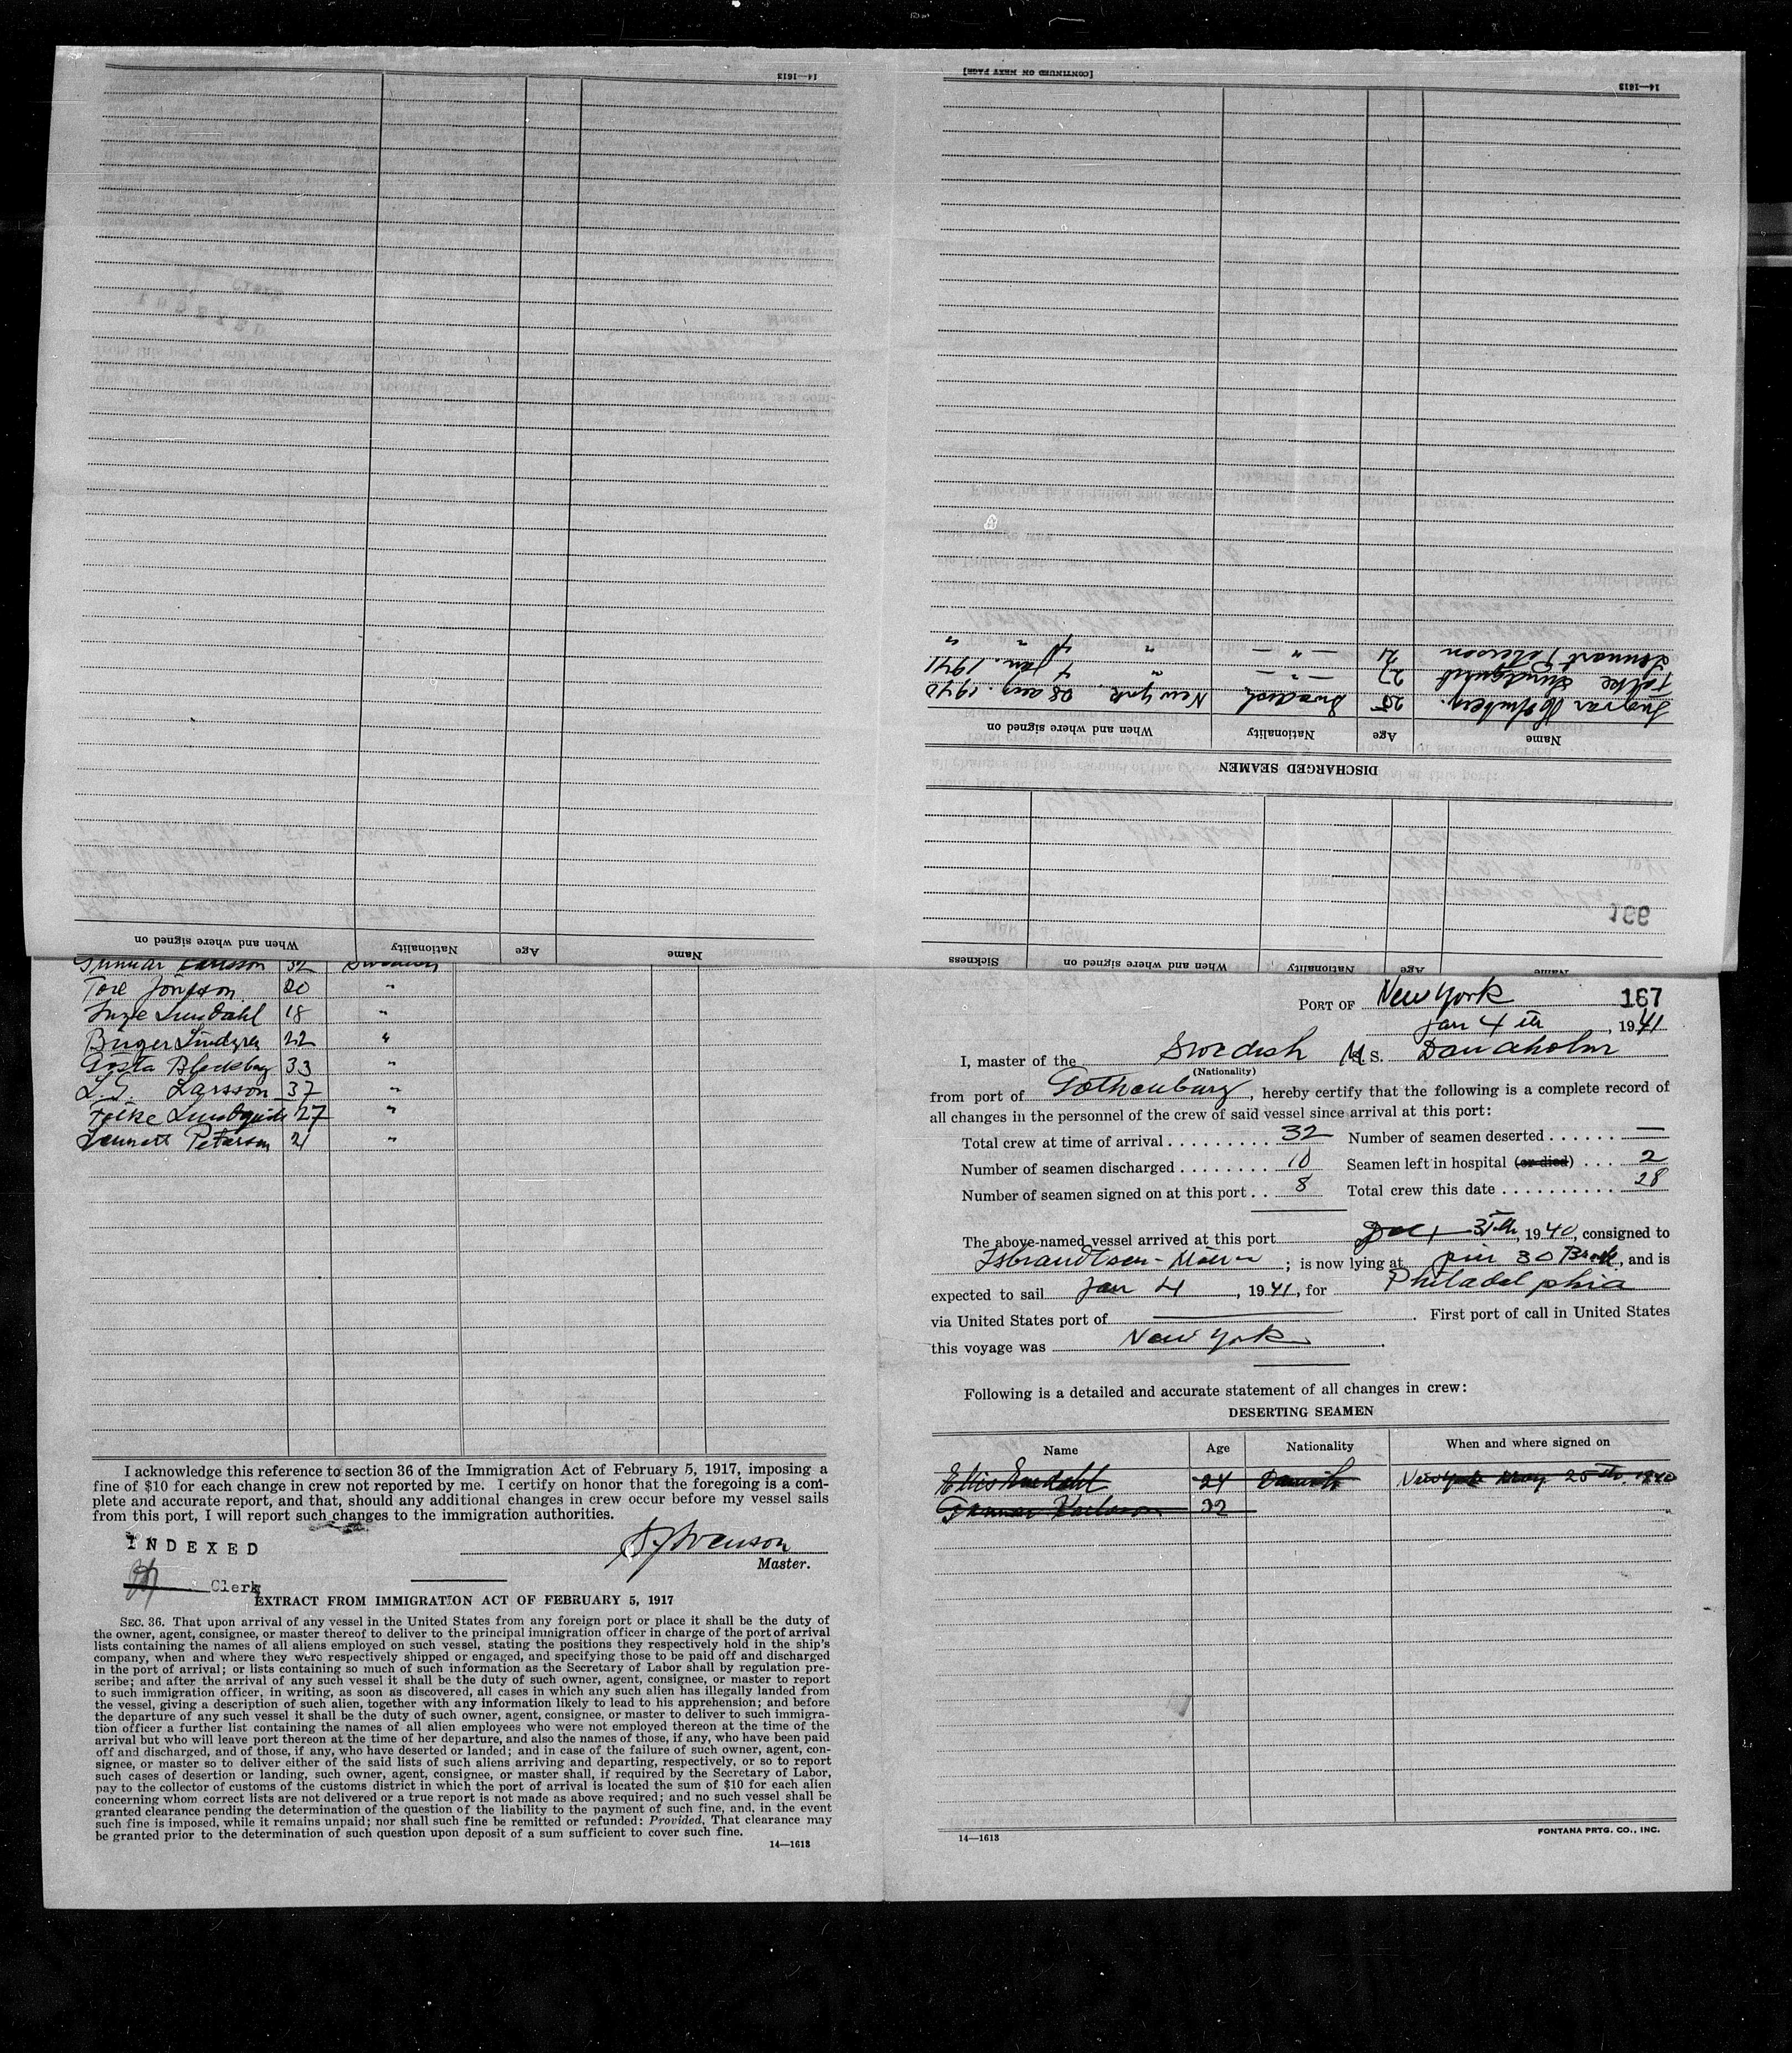 14—1613
When and where signed on Nationality Age Name
[CONTINUED ON NEXT PAGE]
14—1613
Lennart Peterson 21 — " — " 4 " "
Folke Lundquist 27 — " — " 4 Jan. 1941
Ingvar 25 Swedish New York 28 aug. 1940
Name Age Nationality When and where signed on
DISCHARGED SEAMEN
166
Name Age Nationality When and where signed on Sickness
Gunnar Karlsson 32 Swedish
Tore Jonsson 20 "
Inge Lundahl 18 "
Birger Lindgren 22 "
Gösta Blecksberg 33 "
L.G. Larsson 37 "
Folke Lundquist 27 "
Lennart Peterson 21 "
I acknowledge this reference to section 36 of the Immigration Act of February 5, 1917, imposing a
fine of $10 for each change in crew not reported by me. I certify on honor that the foregoing is a com-
plete and accurate report, and that, should any additional changes in crew occur before my vessel sails
from this port, I will report such changes to the immigration authorities.
INDEXED
Svenson
Master.
Clerk
EXTRACT FROM IMMIGRATION ACT OF FEBRUARY 5, 1917
SEC. 36. That upon arrival of any vessel in the United States from any foreign port or place it shall be the duty of
the owner, agent, consignee, or master thereof to deliver to the principal immigration officer in charge of the port of arrival
lists containing the names of all aliens employed on such vessel, stating the positions they respectively hold in the ship's
company, when and where they were respectively shipped or engaged, and specifying those to be paid off and discharged
in the port of arrival; or lists containing so much of such information as the Secretary of Labor shall by regulation pre-
scribe; and after the arrival of any such vessel it shall be the duty of such owner, agent, consignee, or master to report
to such immigration officer, in writing, as soon as discovered, all cases in which any such alien has illegally landed from
the vessel, giving a description of such alien, together with any information likely to lead to his apprehension; and before
the departure of any such vessel it shall be the duty of such owner, agent, consignee, or master to deliver to such immigra-
tion officer a further list containing the names of all alien employees who were not employed thereon at the time of the
arrival but who will leave port thereon at the time of her departure, and also the names of those, if any, who have been paid
off and discharged, and of those, if any, who have deserted or landed; and in case of the failure of such owner, agent, con-
signee, or master so to deliver either of the said lists of such aliens arriving and departing, respectively, or so to report
such cases of desertion or landing, such owner, agent, consignee, or master shall, if required by the Secretary of Labor,
pay to the collector of customs of the customs district in which the port of arrival is located the sum of $10 for each alien
concerning whom correct lists are not delivered or a true report is not made as above required; and no such vessel shall be
granted clearance pending the determination of the question of the liability to the payment of such fine, and, in the event
such fine is imposed, while it remains unpaid; nor shall such fine be remitted or refunded: Provided, That clearance may
be granted prior to the determination of such question upon deposit of a sum sufficient to cover such fine.
14—1613
PORT OF New York 167
Jan 4 th, 1941
I, master of the Swedish M. S. Danaholm
(Nationality)
from port of Gothenburg, hereby certify that the following is a complete record of
all changes in the personnel of the crew of said vessel since arrival at this port:
Total crew at time of arrival 32 Number of seamen deserted —
Number of seamen discharged 10 Seamen left in hospital (or died) 2
Number of seamen signed on at this port 8 Total crew this date 28
The above-named vessel arrived at this port Dec 31th, 1940, consigned to
Isbrandtsen-Möller; is now lying at pier 30 , and is
expected to sail Jan 4, 1941, for Philadelphia
via United States port of ———. First port of call in United States
this voyage was New York.
Following is a detailed and accurate statement of all changes in crew:
DESERTING SEAMEN
Name Age Nationality When and where signed on
24 Danish New York May 25th 1940
Gunnar Karlsson 32
14—1613
FONTANA PRTG. CO., INC.